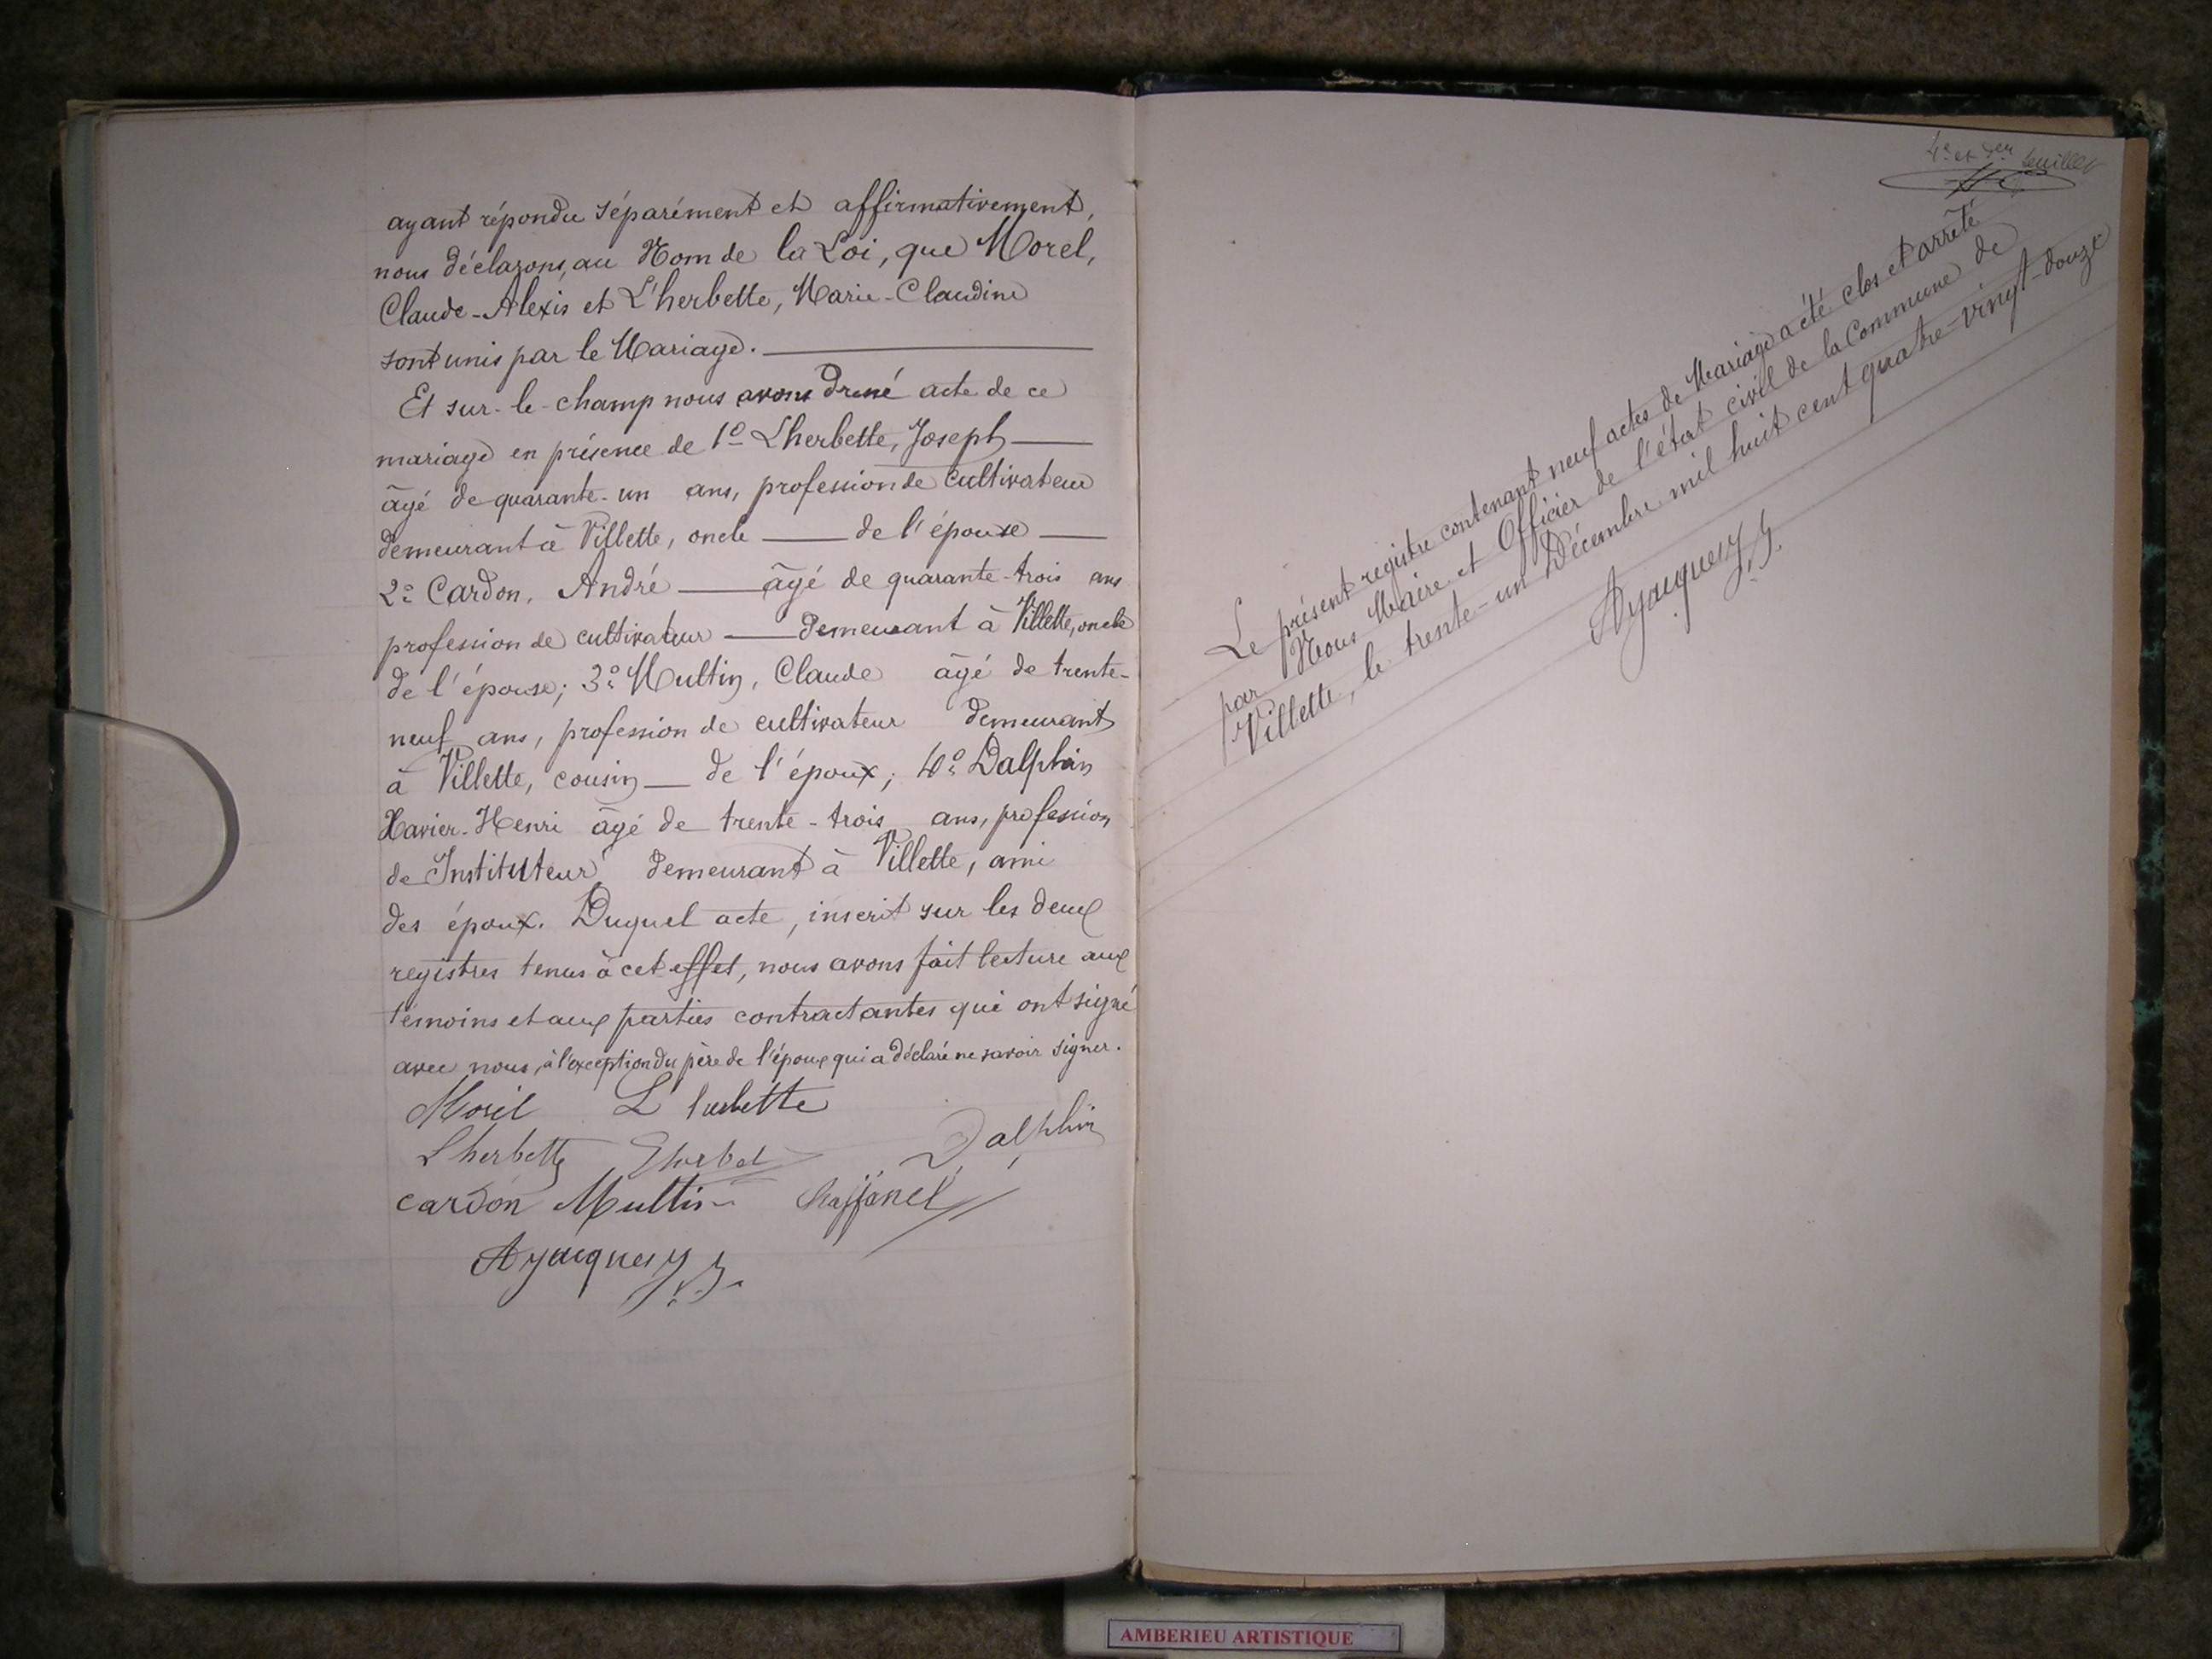 ayant répondu séparément et affirmativement,
nous déclarons, au Nom de la Loi, que Morel,
Claude-Alexis et L'herbette, Marie-Claudine
sont unis par le Mariage.
Et sur-le-champ nous avons dressé acte de ce
mariage en présence de 1º Lherbette, Joseph
âgé de quarante-un ans, profession de cultivateur
demeurant à Villette, oncle de l'épouse
2º Cardon, André âgé de quarante-trois ans
profession de cultivateur demeurant à Villette, oncle
de l'épouse; 3º Multin, Claude âgé de trente-
neuf ans, profession de cultivateur demeurant
à Villette, cousin de l'époux; 4º Dalphin
Xavier-Henri âgé de trente-trois ans, profession
de Instituteur demeurant à Villette, ami
des époux. Duquel acte, inscrit sur les deux
registres tenus à cet effet, nous avons fait lecture aux
témoins et aux parties contractantes qui ont signé
avec nous, à l'exception du père de l'époux qui a déclaré ne savoir signer.
Morel L'herbette
Lherbette Dalphin
cardon Multin Chaffanel
4e et der feuillet
Le présent registre contenant neuf actes de Mariage a été clos et arrêté
par Nous Maire et Officier de l'état civil de la Commune de
Villette, le trente-un Décembre mil huit cent quatre-vingt-douze
AMBERIEU ARTISTIQUE